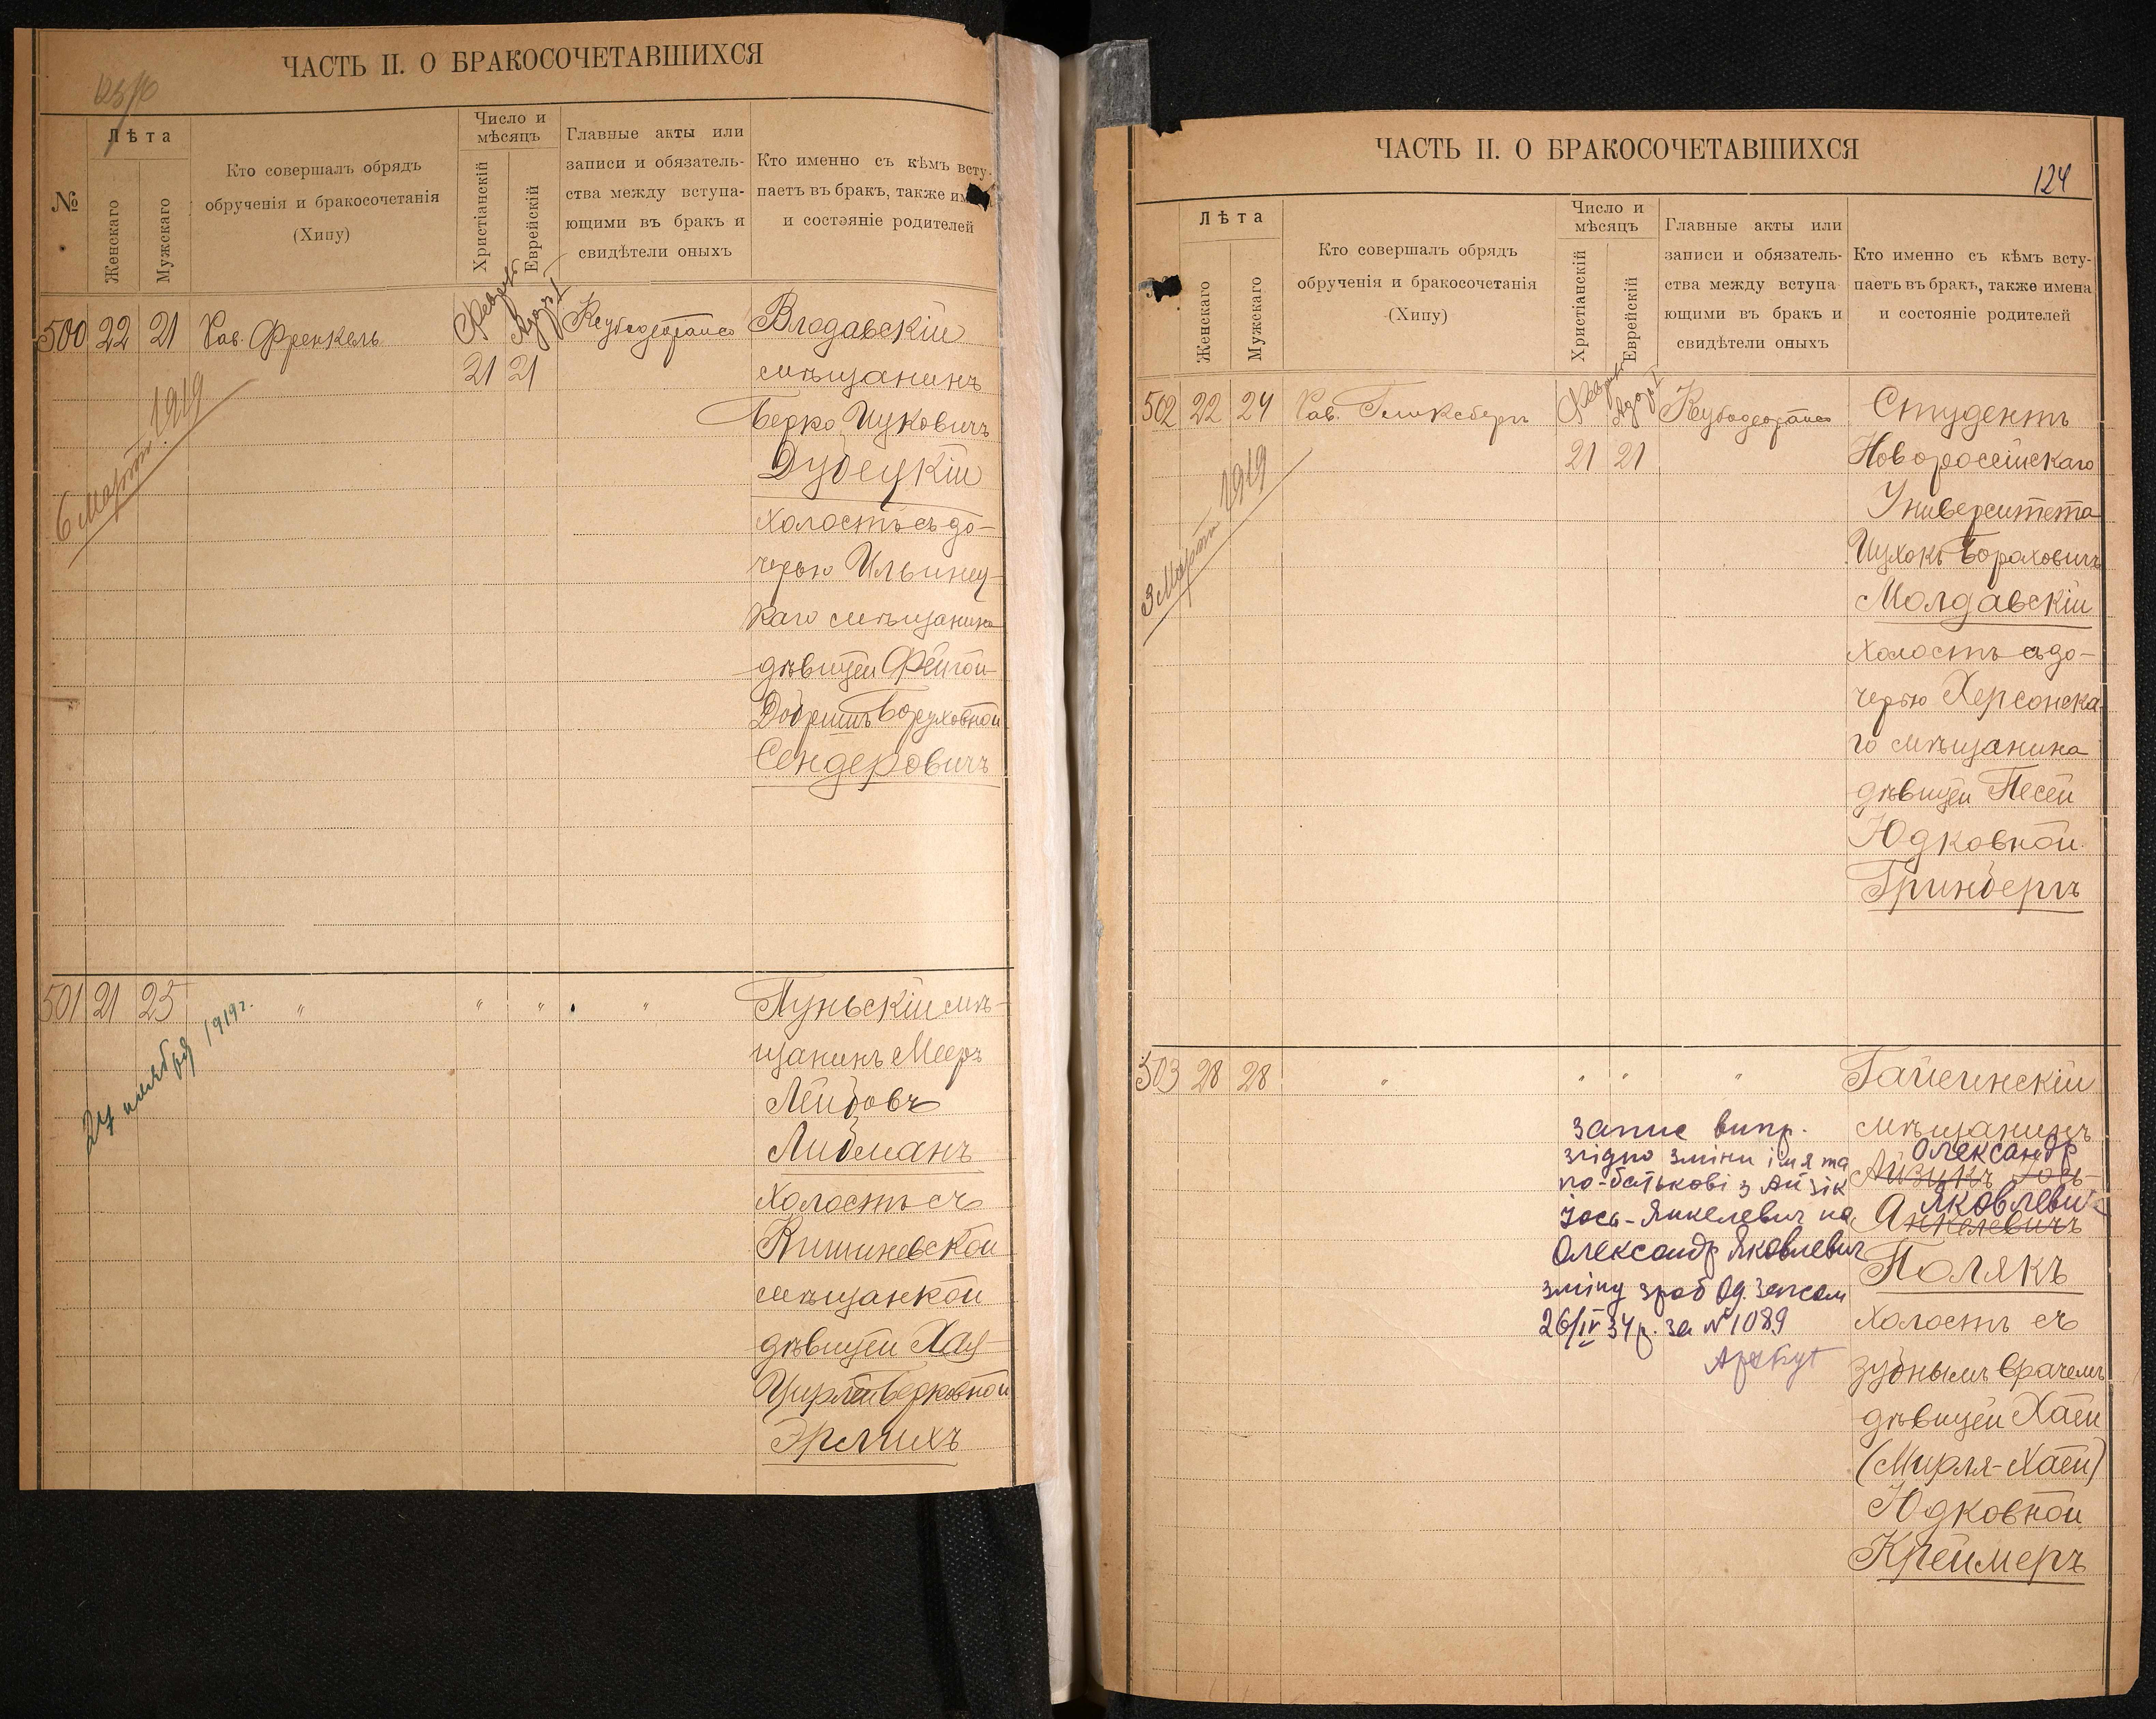 ЧАСТЬ II. О БРАКОСОЧЕТАВШИХСЯ
№
Лѣта
Женскаго
Мужскаго
Кто совершалъ обрядъ
обрученія и бракосочетанія
(Хипу)
Число и
мѣсяцъ
Христіанскій
Еврейскій
Главные акты или
записи и обязатель-
ства между вступа-
ющими въ бракъ и
свидѣтели оныхъ
Кто именно съ кѣмъ всту-
паетъ въ бракъ, также
и состояніе родителей
500 22 21 Рав. Френкель
21 21
6 Марта 1919
Влодавскій
мѣщанинъ
Берко Ицковичъ
Дубецкій
холостъ съ до-
черью Ильинец-
каго мѣщанина
дѣвицей Фейгой
Добришъ Боруховной
Сендеровичъ
501 21 25 " " " "
24 ноября 1919 г.
Пуньскій мѣ-
щанинъ Мееръ
Лейбовъ
Либманъ
холостъ съ
Кишиневской
мѣщанкой
дѣвицей Хая
Цирлей Берковной
Эрлихъ
ЧАСТЬ II. О БРАКОСОЧЕТАВШИХСЯ
124
Лѣта
Женскаго
Мужскаго
Кто совершалъ обрядъ
обрученія и бракосочетанія
(Хипу)
Число и
мѣсяцъ
Христіанскій
Еврейскій
Главные акты или
записи и обязатель-
ства между вступа
ющими въ бракъ и
свидѣтели оныхъ
Кто именно съ кѣмъ всту-
паетъ въ бракъ, также имена
и состояніе родителей
502 22 24 Рав. Гликсбергъ
21 21
3 Марта 1919
Студентъ
Новоросейскаго
Университета
Ицхокъ Бораховичъ
Молдавскій
холостъ съ до-
черью Херсонска-
го мѣщанина
дѣвицей Песей
Юдковной
Гринбергъ
503 28 28 " " " "
Гайсинскій
мѣщанинъ
Олександр
Айзикъ Іось-
Яковлевич
Анкелевичъ
Полякъ
холостъ съ
зубнымъ врачемъ
дѣвицей Хаей
(Мирля-Хаей)
Юдковной
Креймеръ
Запис випр.
згідно зміни імя та
по-батькові з Айзік
Іось-Янкелевич на
Олександр Яковлевич
зміну зроб Од. Загсом
26/IV 34 р. за № 1089